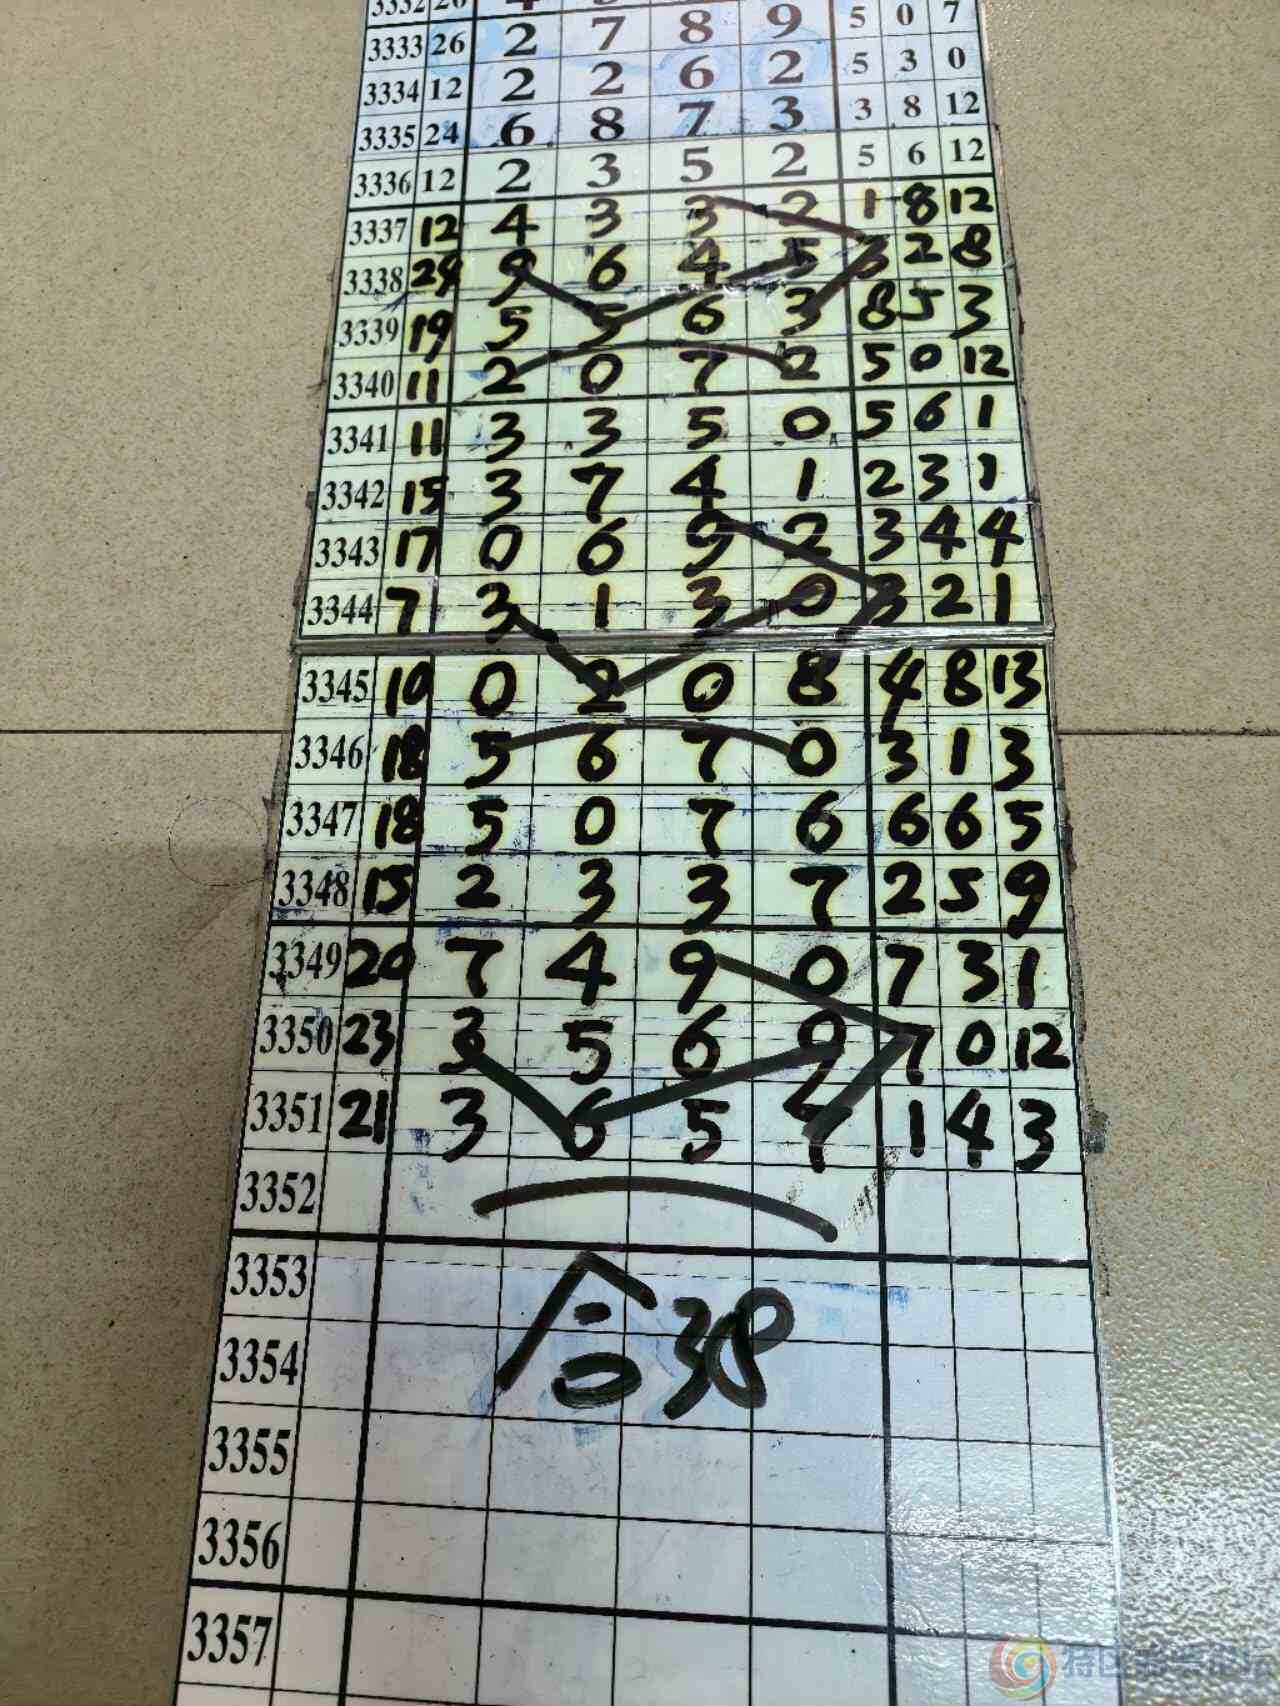 3333 26 2 7 8 9 5 0 7
3334 12 2 2 6 2 5 3 0
3335 24 6 8 7 3 3 8 12
3336 12 2 3 5 2 5 6 12
3337 12 4 3 3 2 1 8 12
3338 24 9 6 4 5 3 2 8
3339 19 5 5 6 3 8 5 3
3340 11 2 0 7 2 5 0 12
3341 11 3 3 5 0 5 6 1
3342 15 3 7 4 1 2 3 1
3343 17 0 6 9 2 3 4 4
3344 7 3 1 3 0 3 2 1
3345 10 0 2 0 8 4 8 13
3346 18 5 6 7 0 3 1 3
3347 18 5 0 7 6 6 6 5
3348 15 2 3 3 7 2 5 9
3349 20 7 4 9 0 7 3 1
3350 23 3 5 6 9 7 0 12
3351 21 3 6 5 7 1 4 3
3352
3353
合38
3354
3355
3356
3357